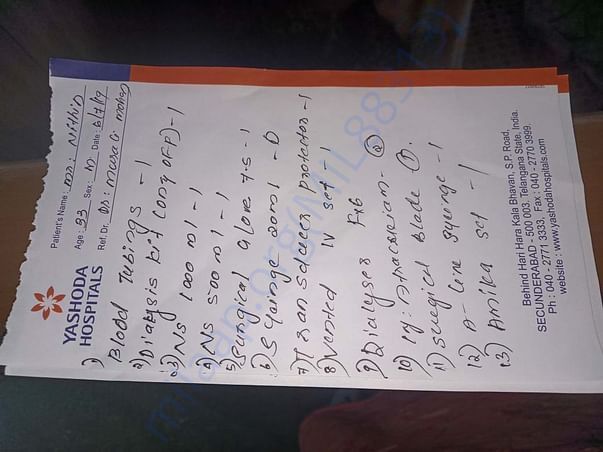 YASHODA
HOSPITALS
Patient's Name : Mr: Nithin
Age : 23 Sex : M Date : 6/7/19
Ref. Dr. Dr: Mohan
1) Blood Tubings - 1
2) Dialysis kit (on/off) - 1
3) NS 1000 ml - 1
4) NS 500 ml - 1
5) Surgical Glove 7.5 - 1
6) Syringe 20ml - 1
7) Transducer protector - 1
8) Vented IV set - 1
9) Dialyser FX6
10) Inj: - 2
11) Surgical Blade 1.
12) A- Line Syringe - 1
13) Amika set - 1
Behind Hari Hara Kala Bhavan, S.P. Road,
SECUNDERABAD - 500 003. Telangana State, India.
Ph : 040 - 2771 3333, Fax : 040 - 2770 3999.
website : www.yashodahospitals.com
milaap.org(MIL88313)